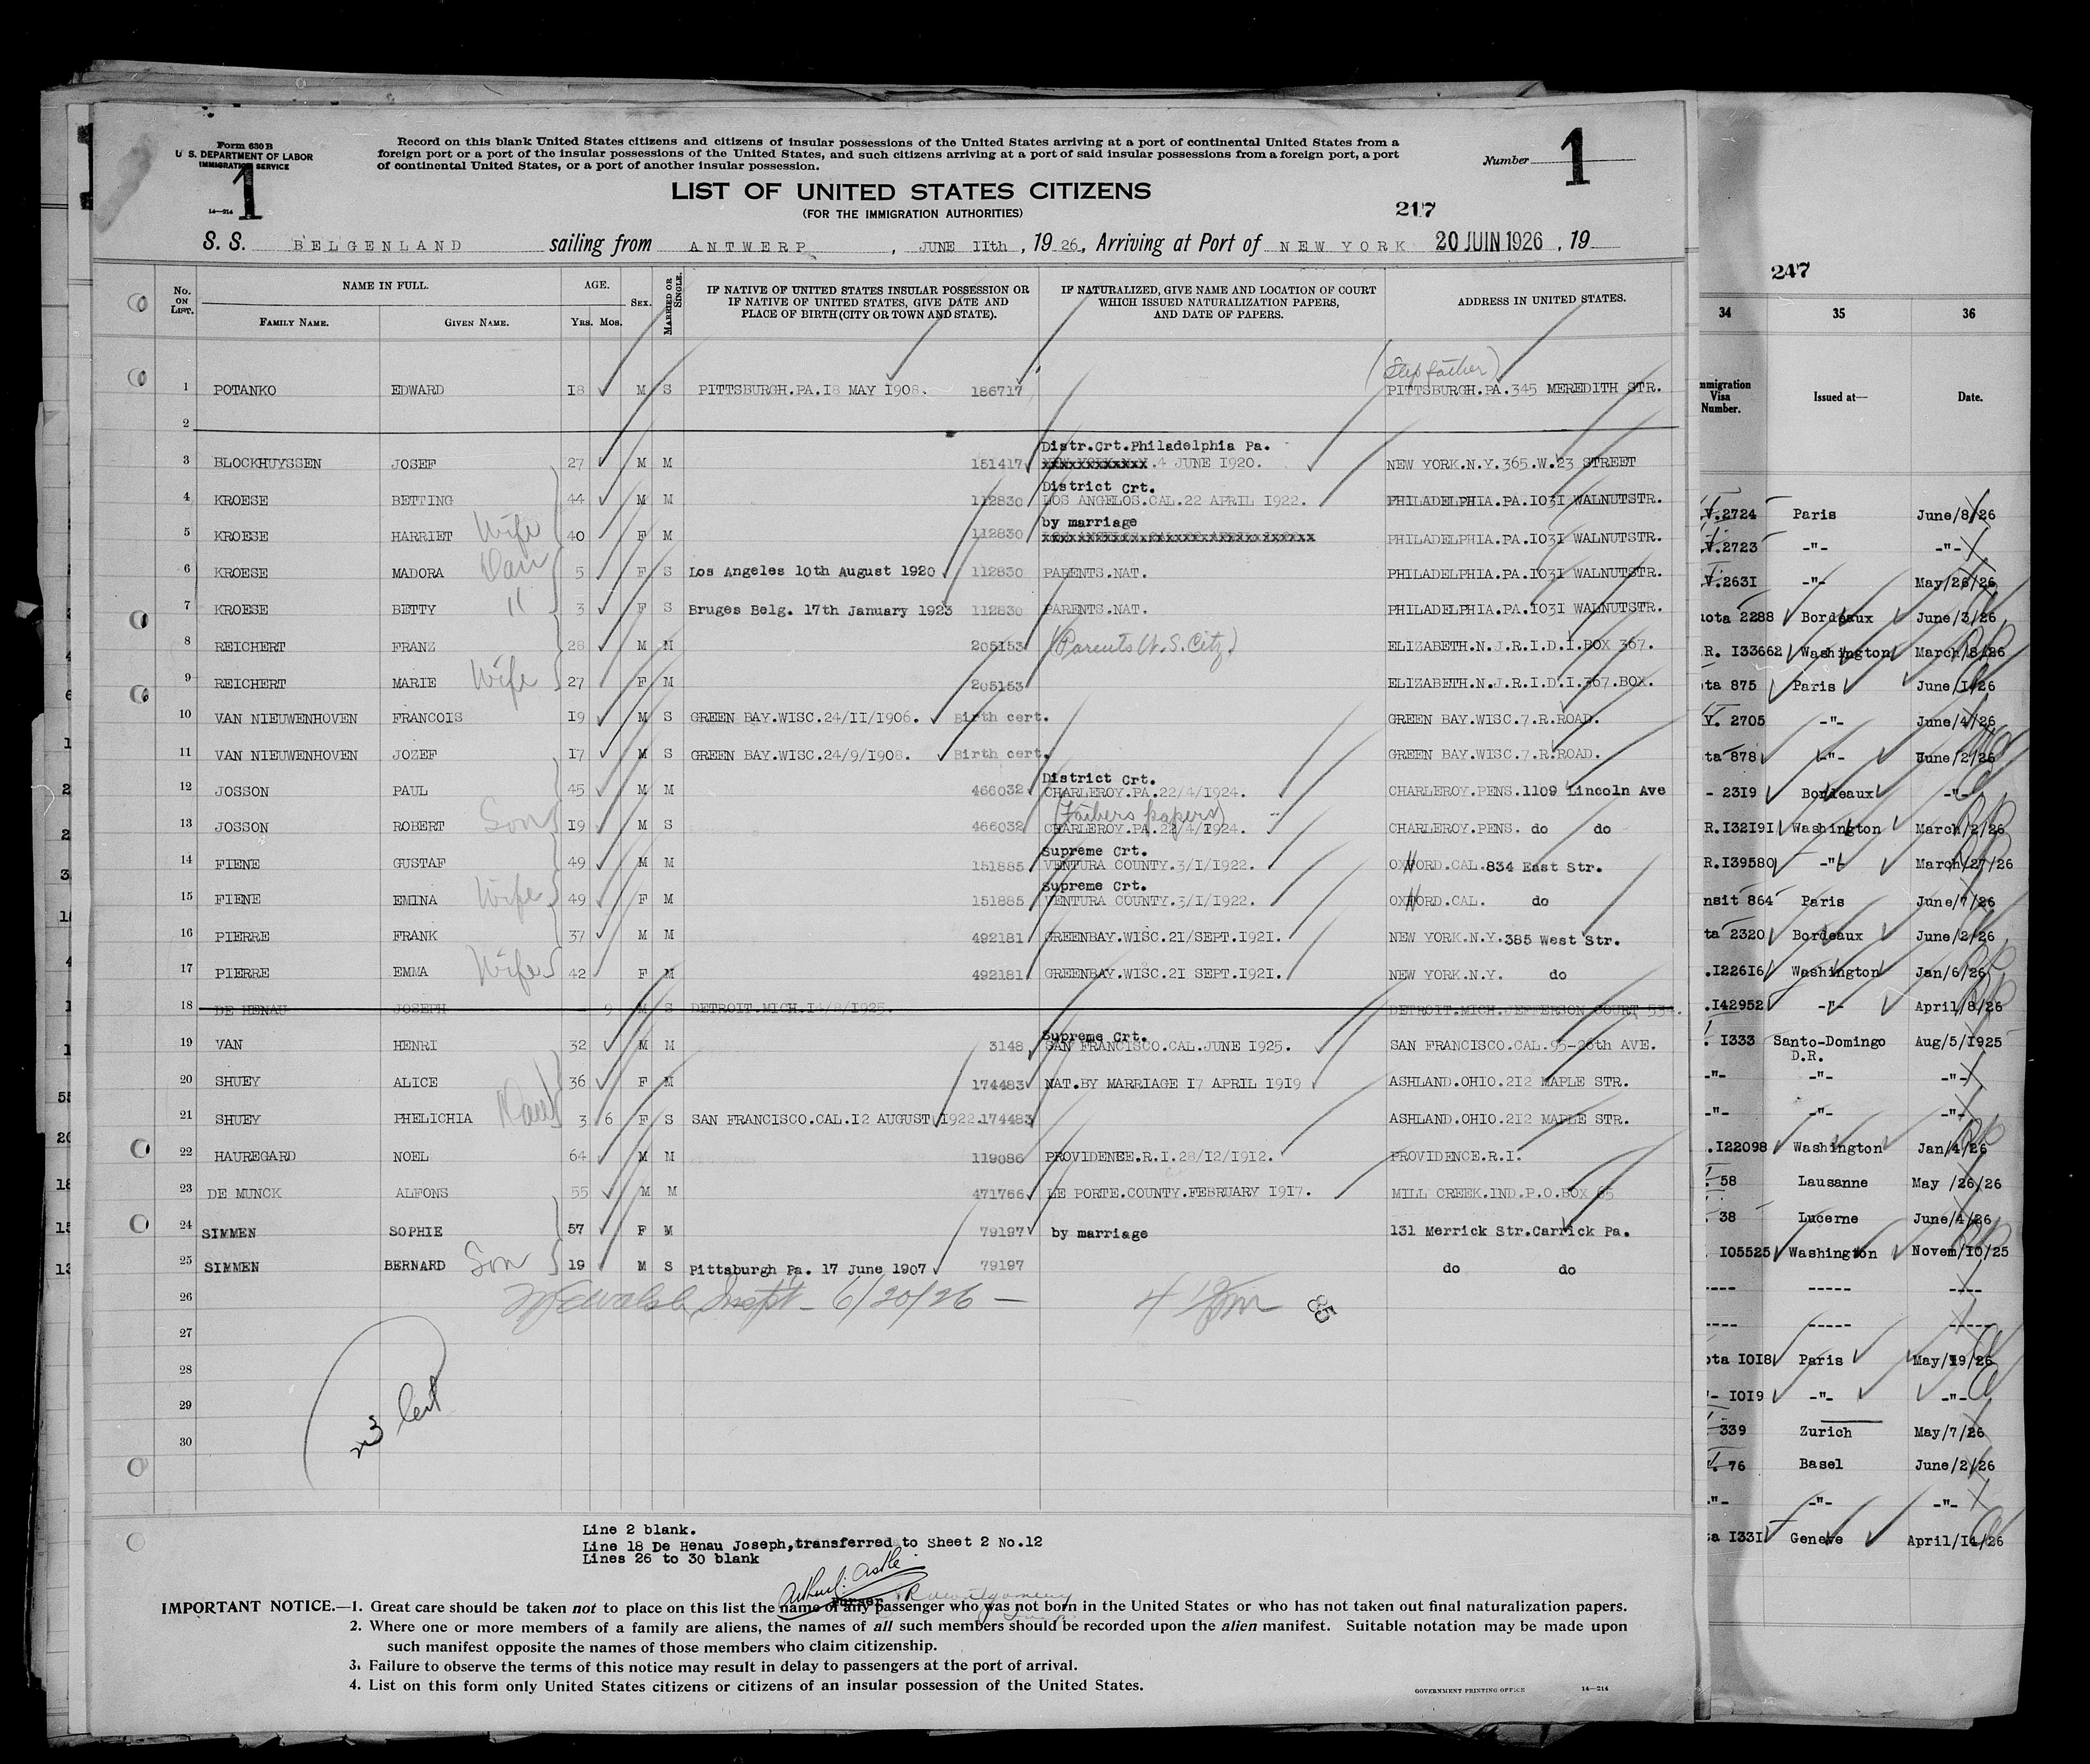 Form 630 B
U. S. DEPARTMENT OF LABOR
IMMIGRATION SERVICE
1
14—214
Record on this blank United States citizens and citizens of insular possessions of the United States arriving at a port of continental United States from a
foreign port or a port of the insular possessions of the United States, and such citizens arriving at a port of said insular possessions from a foreign port, a port
of continental United States, or a port of another insular possession.
Number 1
LIST OF UNITED STATES CITIZENS
(FOR THE IMMIGRATION AUTHORITIES)
217
S. S. BELGENLAND sailing from ANTWERP, JUNE IIth, 1926, Arriving at Port of NEW YORK 20 JUIN 1926, 19
No. ON LIST. NAME IN FULL. FAMILY NAME. GIVEN NAME. AGE. YRS. MOS. SEX. MARRIED OR SINGLE.
IF NATIVE OF UNITED STATES INSULAR POSSESSION OR IF NATIVE OF UNITED STATES, GIVE DATE AND PLACE OF BIRTH (CITY OR TOWN AND STATE).
IF NATURALIZED, GIVE NAME AND LOCATION OF COURT WHICH ISSUED NATURALIZATION PAPERS, AND DATE OF PAPERS.
ADDRESS IN UNITED STATES.
(Stepfather)
1 POTANKO EDWARD I8 M S PITTSBURGH.PA.I8 MAY I908. 186717 PITTSBURGH.PA.345 MEREDITH STR.
2
Distr.Crt.Philadelphia Pa.
3 BLOCKHUYSSEN JOSEF 27 M M 151417 .4 JUNE I920. NEW YORK.N.Y.365.W.23 STREET
District Crt.
4 KROESE BETTING 44 M M 112830 LOS ANGELOS.CAL.22 APRIL I922. PHILADELPHIA.PA.I03I WALNUTSTR.
by marriage
5 KROESE HARRIET Wife 40 F M 112830 PHILADELPHIA.PA.I03I WALNUTSTR.
6 KROESE MADORA Dau 5 F S Los Angeles 10th August 1920 112830 PARENTS.NAT. PHILADELPHIA.PA.I03I WALNUTSTR.
7 KROESE BETTY " 3 F S Bruges Belg. 17th January 1923 112830 PARENTS.NAT. PHILADELPHIA.PA.I03I WALNUTSTR.
8 REICHERT FRANZ 28 M M 205153 (Parents U.S. Citz) ELIZABETH.N.J.R.I.D.I.BOX 367.
9 REICHERT MARIE Wife 27 F M 205153 ELIZABETH.N.J.R.I.D.I.367.BOX.
10 VAN NIEUWENHOVEN FRANCOIS I9 M S GREEN BAY.WISC.24/II/I906. Birth cert. GREEN BAY.WISC.7.R.ROAD.
11 VAN NIEUWENHOVEN JOZEF I7 M S GREEN BAY.WISC.24/9/I908. Birth cert. GREEN BAY.WISC.7.R.ROAD.
District Crt.
12 JOSSON PAUL 45 M M 466032 CHARLEROY.PA.22/4/I924. CHARLEROY.PENS.1109 Lincoln Ave
(Fathers papers)
13 JOSSON ROBERT Son I9 M S 466032 CHARLEROY.PA.22/4/I924. CHARLEROY.PENS. do do
Supreme Crt.
14 FIENE GUSTAF 49 M M 151885 VENTURA COUNTY.3/I/I922. OXFORD.CAL.834 East Str.
Supreme Crt.
15 FIENE EMINA Wife 49 F M 151885 VENTURA COUNTY.3/I/I922. OXFORD.CAL. do
16 PIERRE FRANK 37 M M 492181 GREENBAY.WISC.2I/SEPT.I92I. NEW YORK.N.Y.385 West Str.
17 PIERRE EMMA Wife 42 F M 492181 GREENBAY.WISC.2I SEPT.I92I. NEW YORK.N.Y. do
18 DE HENAU JOSEPH 9 M S DETROIT.MICH.I4/8/I925. DETROIT.MICH.JEFFERSON COURT 53
Supreme Crt.
19 VAN HENRI 32 M M 3148 SAN FRANCISCO.CAL.JUNE I925. SAN FRANCISCO.CAL.95-26th AVE.
20 SHUEY ALICE 36 F M 174483 NAT.BY MARRIAGE I7 APRIL I9I9 ASHLAND.OHIO.2I2 MAPLE STR.
21 SHUEY PHELICHIA Dau 3 6 F S SAN FRANCISCO.CAL.I2 AUGUST I922.174483 ASHLAND.OHIO.2I2 MAPLE STR.
22 HAUREGARD NOEL 64 M M 119086 PROVIDENEE.R.I.28/I2/I9I2. PROVIDENCE.R.I.
23 DE MUNCK ALFONS 55 M M 471766 LE PORTE.COUNTY.FEBRUARY I9I7. MILL CREEK.IND.P.O.BOX 65
24 SIMMEN SOPHIE 57 F M 79197 by marriage 131 Merrick Str.Carrick Pa.
25 SIMMEN BERNARD Son 19 M S Pittsburgh Pa. 17 June 1907 79197 do do
26 Insp't - 6/20/26 —
27
28
29
30
23 Cert
Line 2 blank.
Line 18 De Henau Joseph,transferred to Sheet 2 No.12
Lines 26 to 30 blank
Purser
IMPORTANT NOTICE.—1. Great care should be taken not to place on this list the name of any passenger who was not born in the United States or who has not taken out final naturalization papers.
2. Where one or more members of a family are aliens, the names of all such members should be recorded upon the alien manifest. Suitable notation may be made upon
such manifest opposite the names of those members who claim citizenship.
3. Failure to observe the terms of this notice may result in delay to passengers at the port of arrival.
4. List on this form only United States citizens or citizens of an insular possession of the United States.
GOVERNMENT PRINTING OFFICE 14—214
247
34 35 36
mmigration Visa Number. Issued at— Date.
V.2724 Paris June/8/26
V.2723 -"- -"-
V.263I -"- May/26/26
uota 2288 Bordeaux June/3/26
R. I33662 Washington March/8/26
ta 875 Paris June/I/26
V. 2705 -"- June/4/26
ta 878 -"- June/2/26
- 23I9 Bordeaux -"-
R.I32I9I Washington March/2/26
R.I39580 -"- March/27/26
nsit 864 Paris June/7/26
ta 2320 Bordeaux June/2/26
.I226I6 Washington Jan/6/26
.I42952 -"- April/8/26
I333 Santo-Domingo D.R. Aug/5/I925
-"- -"- -"-
-"- -"- -"-
.I22098 Washington Jan/4/26
58 Lausanne May /26/26
38 Lucerne June/4/26
I05525 Washington Novem/I0/25
---- ----- ----
---- ----- -----
ota I0I8 Paris May/I9/26
- I0I9 -"- -"-
339 Zurich May/7/26
76 Basel June/2/26
-"- -"- -"-
a I33I Geneve April/I4/26